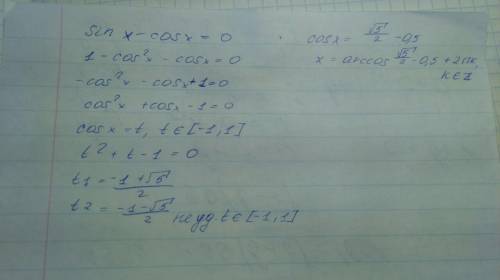 sin x - cosx = 0
1 - cos²x - cosx = 0
-cos²x - cosx + 1 = 0
cos²x + cosx - 1 = 0
cosx = t, t ∈ [-1, 1]
t² + t - 1 = 0
t1 = (-1 + √5)/2
t2 = (-1 - √5)/2 не уд t ∈ [-1, 1]
cosx = √5/2 - 0,5
x = arccos √5/2 - 0,5 + 2πk,
k ∈ Z